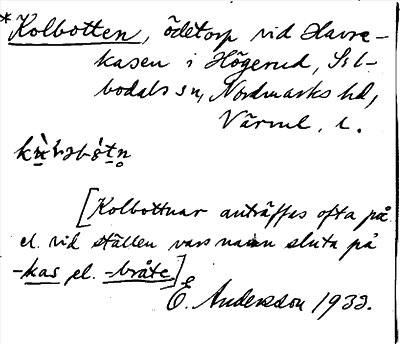 *Kolbotten, ödetorp vid Havre-
kasen i Högerud, Sil-
bodals sn, Nordmarks hd,
Värml. l.
[Kolbottnar anträffas ofta på
el. vid ställen vars namn sluta på
-kas el. -bråte.]
E. Andersson 1933.